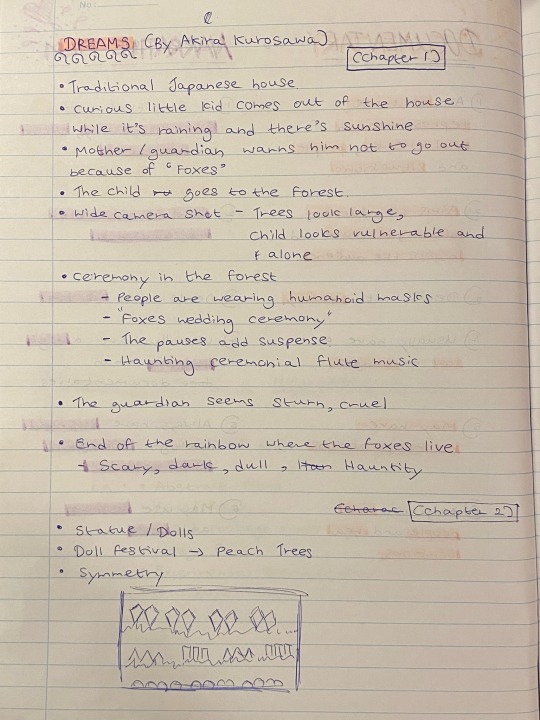 No:
DREAMS (By Akira Kurosawa)
(Chapter 1)
• Traditional Japanese house.
• curious little kid comes out of the house
while it's raining and there's sunshine
• Mother / guardian warns him not to go out
because of "Foxes"
• The child goes to the forest.
• wide camera shot - Trees look large,
child looks vulnerable and
alone
• ceremony in the forest
- People are wearing humanoid masks
- "Foxes wedding ceremony"
- The pauses add suspense
- Haunting ceremonial flute music
• The guardian seems sturn, cruel
• End of the rainbow where the foxes live
- Scary, dark, dull, Hauntity
(Chapter 2)
• Statue / Dolls
• Doll festival → Peach Trees
• Symmetry